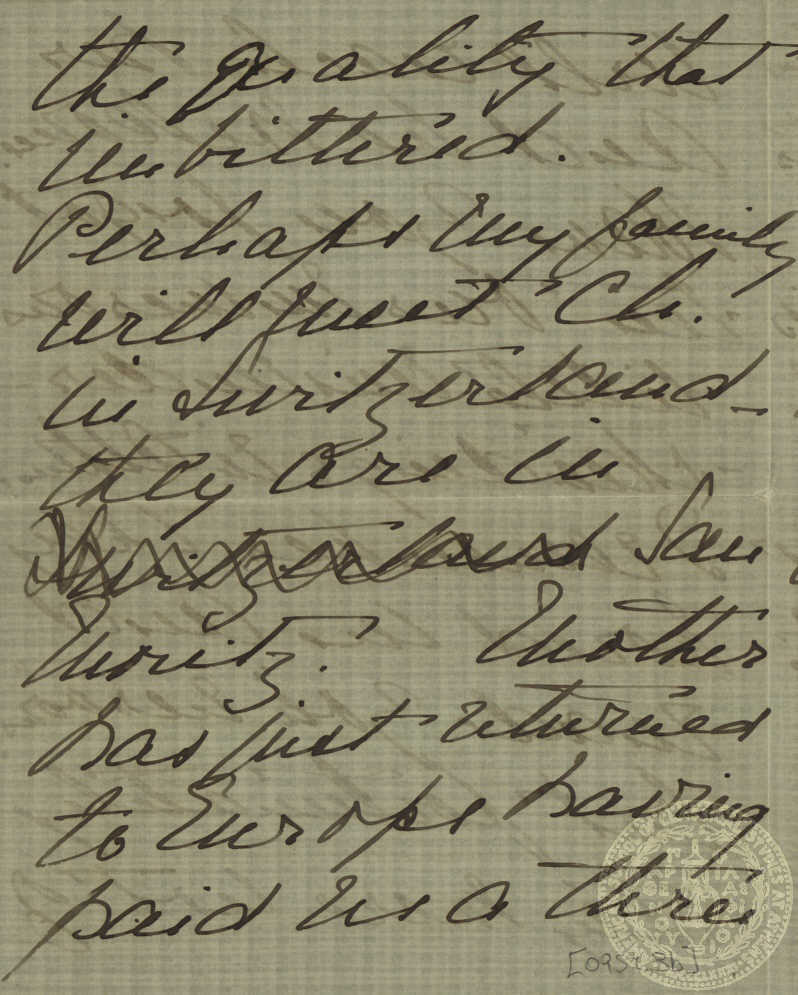 the quality that
imbittered.
Perhaps my family
will meet Ch.
in Switzerland—
they are in
Switzerland San
Moritz. Mother
has just returned
to Europe having
paid us a three
[0959.3b]